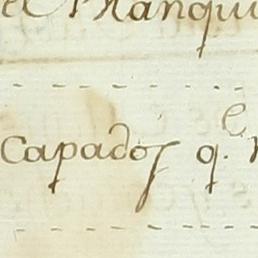 el Manqui
Capados q.e